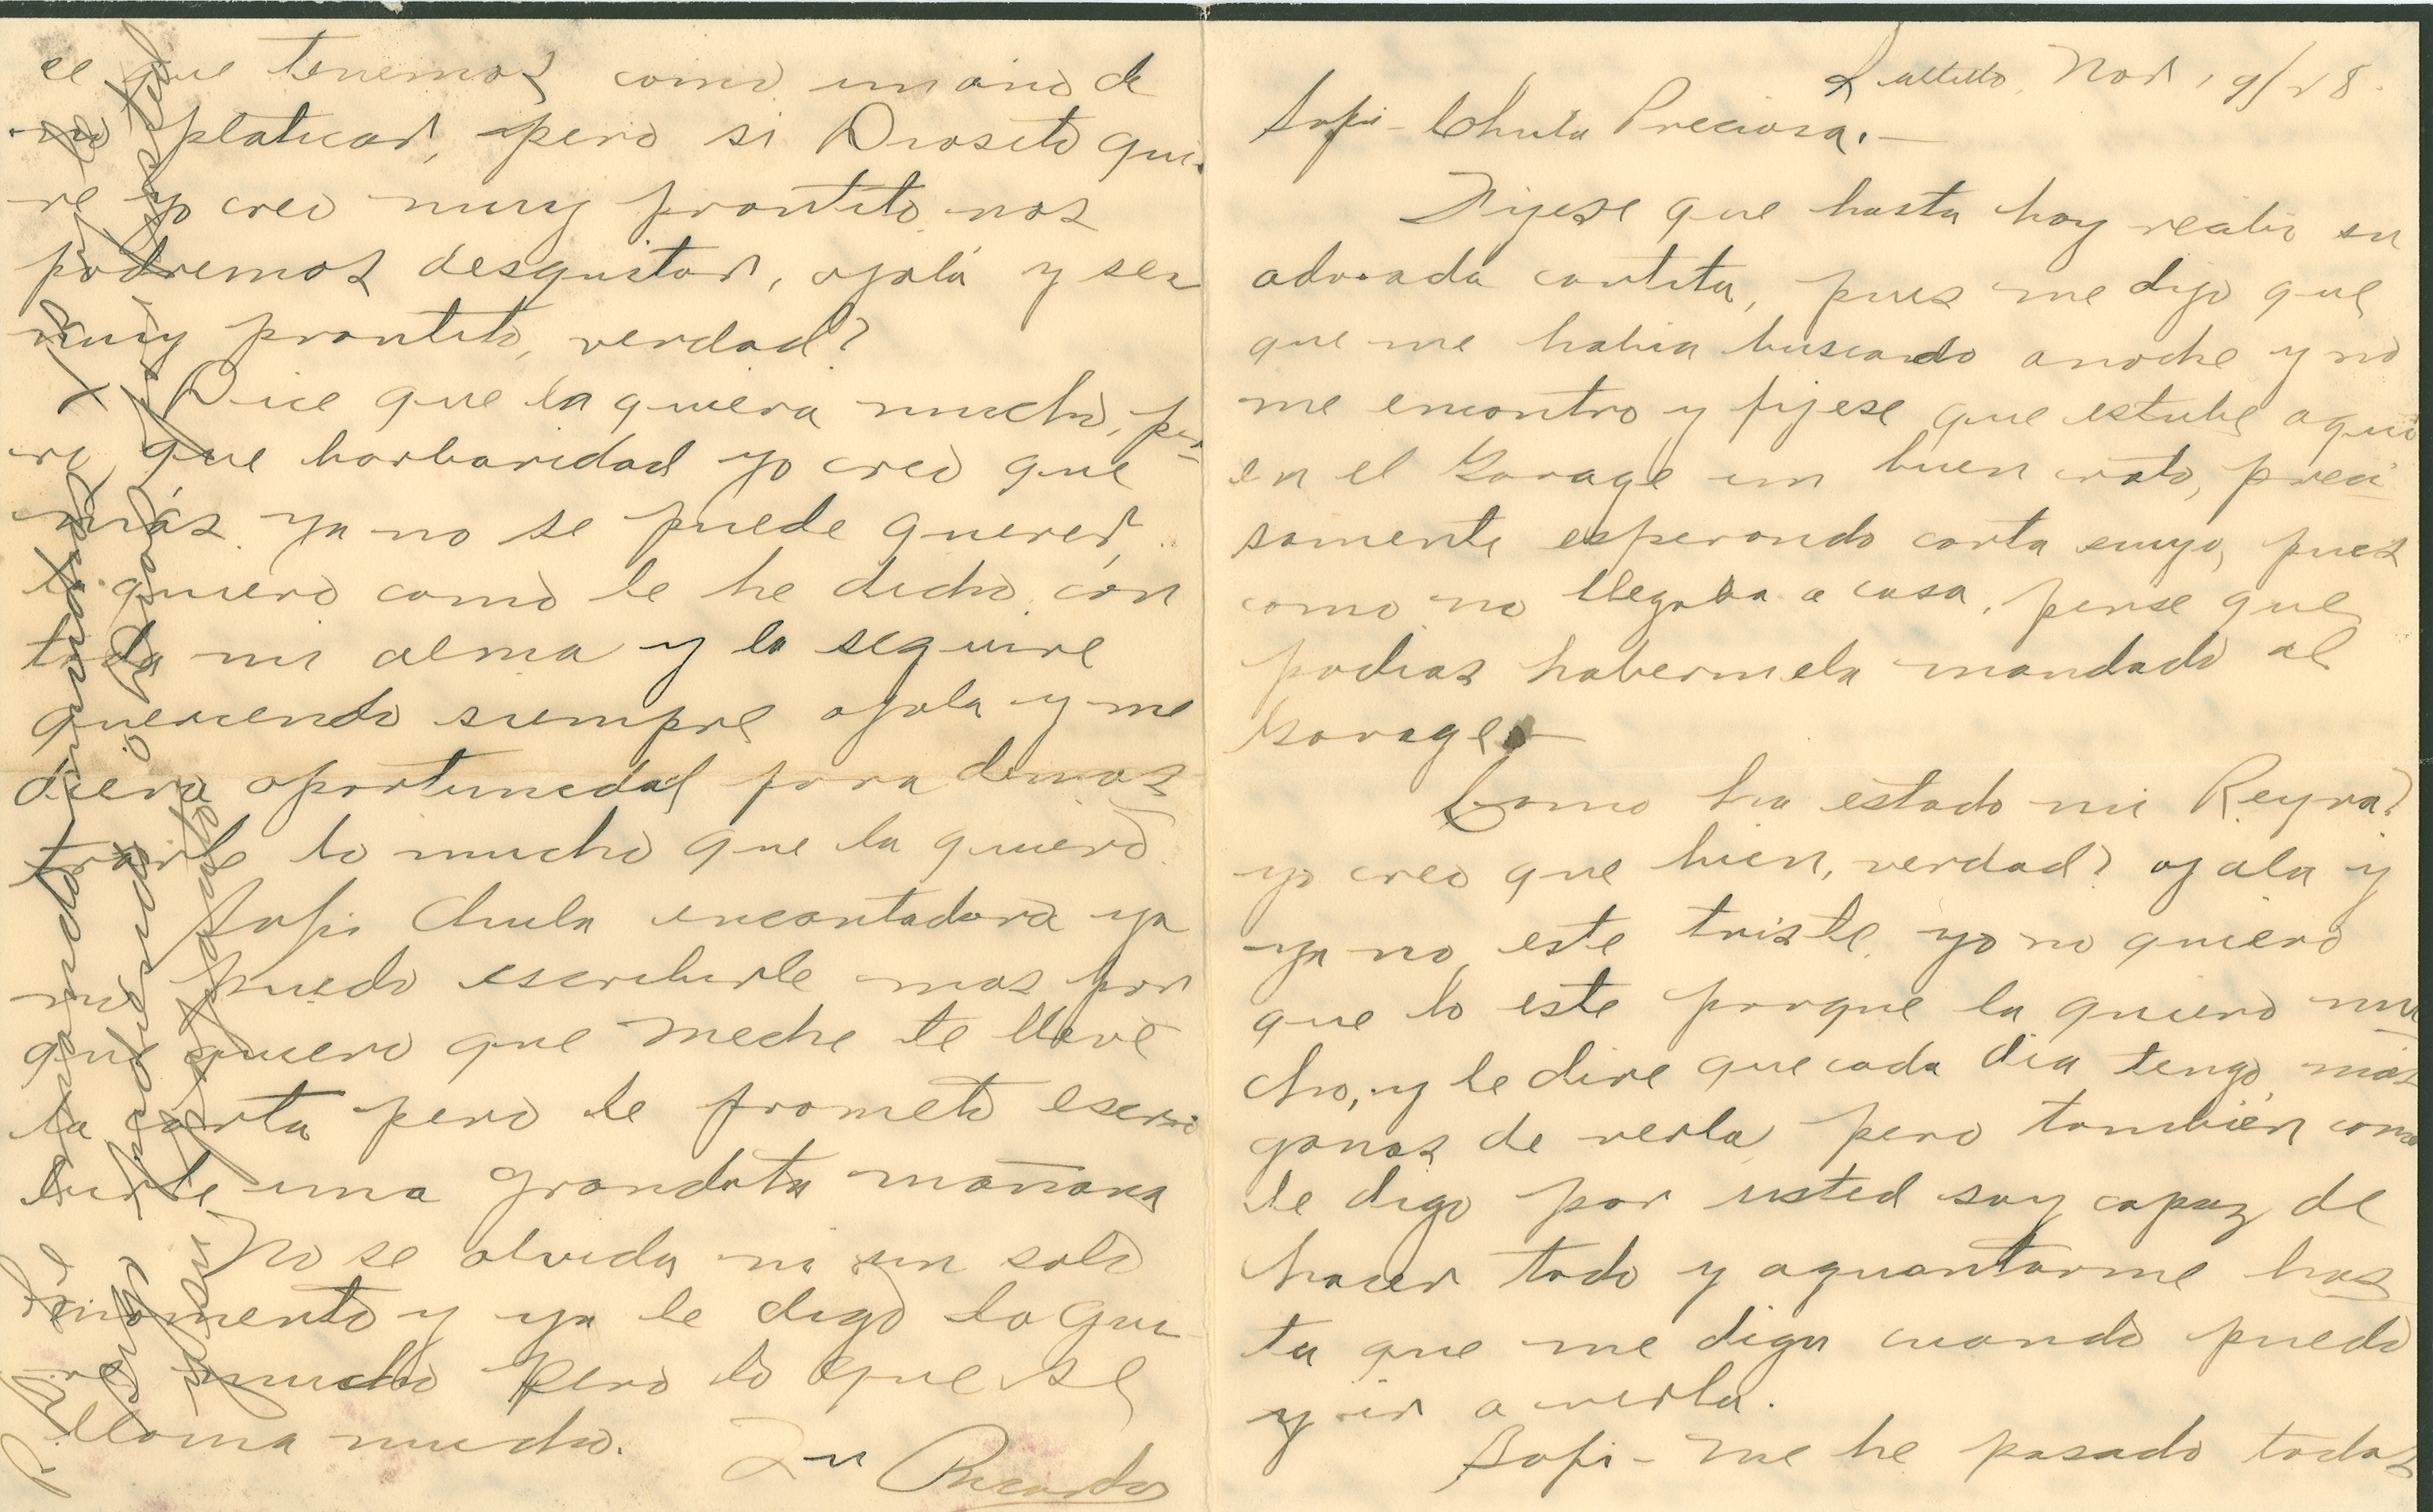 Salttillo, Nov, 9/28.
Sofi- Chula Preciosa.-
Fijese que hasta hoy recibi su
adorada cartita, pues me dijo que
que me habia buscando anoche y no
me encontro y fijese que estube aqui
en el Garage un buen rato, preci
samente esperando carta suya, pues
como no llegaba a casa, pense que
podias habermela mandado al
Garage-
Como ha estado mi Reyna?
yo creo que bien, verdad? ojala y
ya no este triste, yo no quiero
que lo este porque la quiero mu
cho, y le dire que cada dia tengo más
ganas de verla, pero también como
le digo por usted soy capaz de
hacer todo y aguantarme has
ta que me diga cuando puedo
yir a verla.
Sofi- me he pasado todas
ce que tenemos como un año de
no platicar, pero si Diosito qui
re yo creo muy prontito nos
podremos desquitar, ojalá y sea
muy prontito, verdad?
Dice que la quiera mucho, pe
ro que barbaridad yo creo que
más ya no se puede querer,
la quiero como le he dicho con
toda mi alma y la seguire
queriendo siempre ojala y me
diera oportunidad para demos
trarle lo mucho que la quiero.
Sofi Chula encantadora ya
no puedo escribirle mas por
que quiero que Meche te lleve
la carta pero le prometo escri
birle una grandota mañana
No se olvida ni un solo
momento y ya le digo la qui
re mucho pero lo que se
llama mucho.
Tu Ricardo